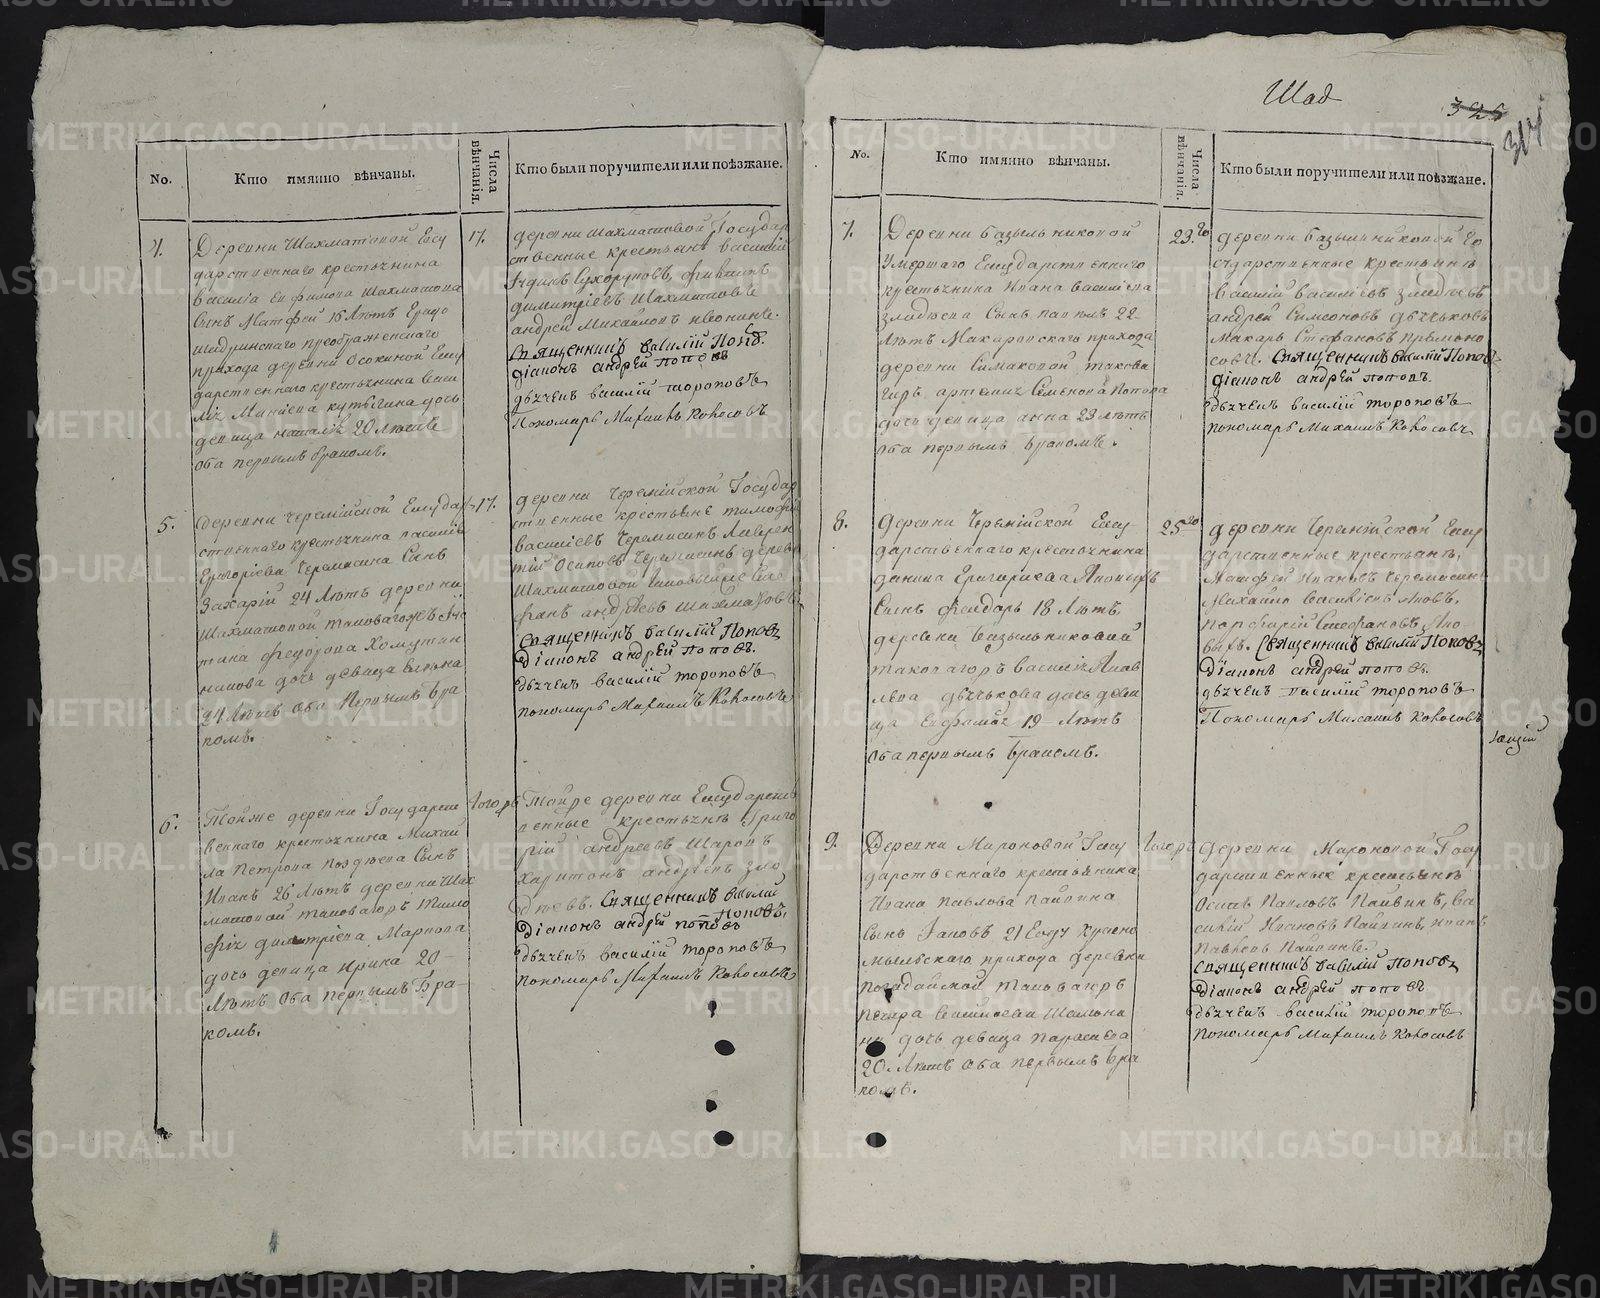 Шад
325
No.
Кто имянно вѣнчаны.
Числа вѣнчанія.
Кто были поручители или поѣзжане.
4.
Деревни Шахматовой Госу
дарственнаго крестьянина
Василіа Ефимова Шахматова
Сынъ Матфей 16 Лѣтъ Градо
шадринскаго преображенскаго
прихода деревни Осокиной Госу
дарственнаго крестьянина Васи
дочь
девица наталія 20 Лѣтъ
оба первымъ бракомъ.
17.
деревни шахматовой Государ
ственные крестьяне василій
Сухоруковъ,
димитріевъ Шахматовъ
андрей Михайловъ
Священникъ василій Поповъ.
діаконъ андрей поповъ
дьячекъ василій тороповъ
Пономарь Михаилъ Кокосовъ
5.
деревни черемисской Государ
ственнаго крестьянина василія
Григоріева Черемисина Сынъ
Захарій 24 Лѣтъ деревни
Шахматовой таковагожъ
феодорова
дочь девица
24 Лѣтъ Оба Первымъ бра
комъ.
17.
деревни Черемисской Государ
ственные крестьяне тимофей
василіевъ Черемисинъ Лаврен
тій Осиповъ Черемисинъ деревни
Шахматовой таковыеже Сте
фанъ андреевъ шахматовъ
священникъ василій Поповъ
Діаконъ андрей поповъ.
дьячекъ василій тороповъ
пономарь Михаилъ Кокосовъ
6.
Тойже деревни Государст
веннаго крестьянина Михай
ла Петрова поздѣева Сынъ
Иванъ 26 Лѣтъ деревни Шах
матовой таковагожъ Тимо
фѣя димитріева Маркова
дочь девица ирина 20
Лѣтъ Оба первымъ Бра
комъ.
тогожъ
Тойже деревни Государст
венные крестьяне Григо
рій андреевъ
Харитонъ андреевъ зло
дѣевъ. Священникъ василій
Поповъ,
Діаконъ андрей поповъ
дьячекъ василій тороповъ
пономарь Михаилъ Кокосовъ
No.
Кто имянно вѣнчаны.
Числа вѣнчанія.
Кто были поручители или поѣзжане.
7.
Деревни базыльниковой
Умершаго Государственнаго
крестьянина Ивана василіева
злодѣева Сынъ павелъ 22
Лѣтъ Макаровскаго прихода
деревни Симаковой такова
гожъ артемія Семенова Попова
дочь девица анна 23 лѣтъ
оба первымъ бракомъ.
23.го
деревни базыльниковой Го
сударственные крестьяне
василій василіевъ злодѣевъ
андрей Симеоновъ дьячьковъ
Макаръ Стефановъ прямоно
совъ. Священникъ василій Поповъ
діаконъ андрей поповъ.
дьячекъ василій тороповъ
пономарь Михаилъ Кокосовъ
8.
деревни Черемисской Госу
дарственнаго крестьянина
данила Григоріева Яковы
Сынъ феодоръ 18 Лѣтъ.
деревни базыльниковой
таковагожъ василія Яков
лева дьячькова дочь деви
ца 19 Лѣтъ
Оба первымъ бракомъ.
25го
деревни Черемисской Госу
дарственные крестьяне,
Матфей Ивановъ Черемисинъ
Михаилъ василіевъ
порфирій Стефановъ
Священникъ василій Поповъ
Діаконъ андрей поповъ.
дьячекъ василій тороповъ
Пономарь Михаилъ Кокосовъ
9.
Деревни Мироновой Госу
дарственнаго крестьянина
Ивана Павлова пайвина
Сынъ Іаковъ 21 Году Красно
мыльскаго прихода деревни
погадайской таковагожъ
Петра василіева Шамони
на дочь девица параскева
20. Лѣтъ оба первымъ бра
комъ.
тогожъ
деревни Мироновой Госу
дарственные крестьяне
Осипъ Павловъ Пайвинъ, ва
силій Ивановъ Пайвинъ, иванъ
Пайвинъ.
Священникъ василій Поповъ
Діаконъ андрей поповъ
дьячекъ василій тороповъ
Пономарь Михаилъ Кокосовъ
METRIKI.GASO-URAL.RU